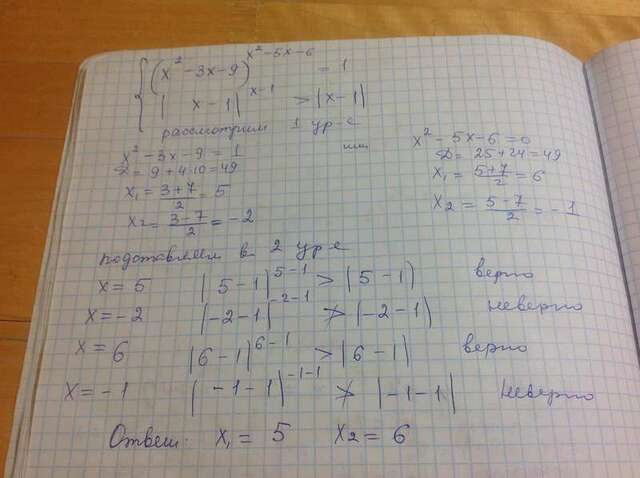 { (x² - 3x - 9)^(x² - 5x - 6) = 1
| x - 1 |^(x - 1) > |x - 1|
рассмотрим 1 ур-е
x² - 3x - 9 = 1 или x² - 5x - 6 = 0
D = 9 + 4·10 = 49 D = 25 + 24 = 49
x₁ = (3+7)/2 = 5 x₁ = (5+7)/2 = 6
x₂ = (3-7)/2 = -2 x₂ = (5-7)/2 = -1
подставляем в 2 ур-е
x = 5 |5-1|^(5-1) > |5-1) верно
x = -2 |-2-1|^(-2-1) ≯ |-2-1) неверно
x = 6 |6-1|^(6-1) > |6-1| верно
x = -1 |-1-1|^(-1-1) ≯ |-1-1| неверно
Ответ: x₁ = 5 x₂ = 6